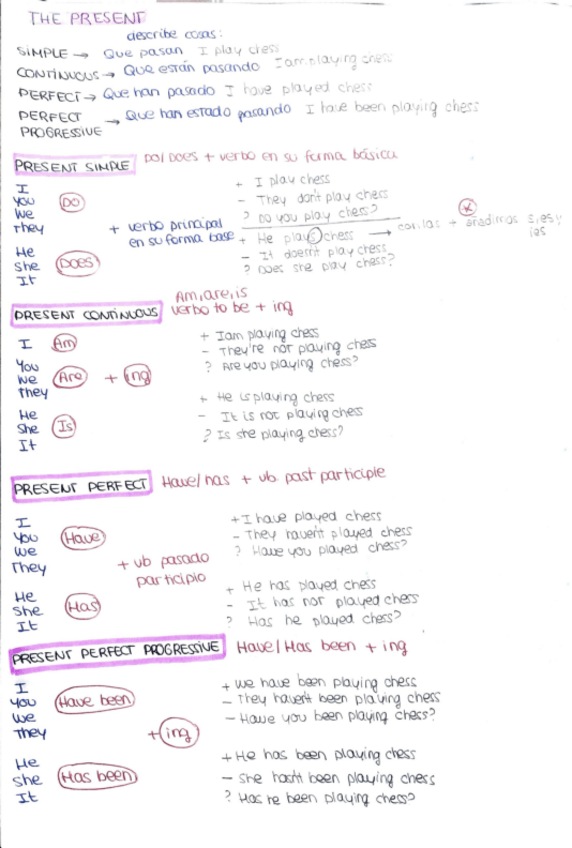 THE PRESENT
describe cosas:
SIMPLE → Que pasan I play chess
CONTINUOUS → Que están pasando I am playing chess
PERFECT → Que han pasado I have played chess
PERFECT PROGRESSIVE → Que han estado pasando I have been playing chess
PRESENT SIMPLE DO/DOES + verbo en su forma básica
I
You
We
They
DO
He
She
It
DOES
+ verbo principal
en su forma base
+ I play chess
- They don't play chess
? Do you play chess?
+ He plays chess → con las + añadimos s, es y ies
- It doesn't play chess
? Does she play chess?
PRESENT CONTINUOUS Am, are, is
verbo to be + ing
I Am
You
We
They
Are
+ ing
He
She
It
Is
+ I am playing chess
- They're not playing chess
? Are you playing chess?
+ He is playing chess
- It is not playing chess
? Is she playing chess?
PRESENT PERFECT Have/has + vb. past participle
I
You
We
They
Have
+ vb pasado
participio
He
She
It
Has
+ I have played chess
- They haven't played chess
? Have you played chess?
+ He has played chess
- It has not played chess
? Has he played chess?
PRESENT PERFECT PROGRESSIVE Have/Has been + ing
I
You
We
They
Have been
+ ing
He
She
It
Has been
+ We have been playing chess
- They haven't been playing chess
- Have you been playing chess?
+ He has been playing chess
- She hasn't been playing chess
? Has he been playing chess?